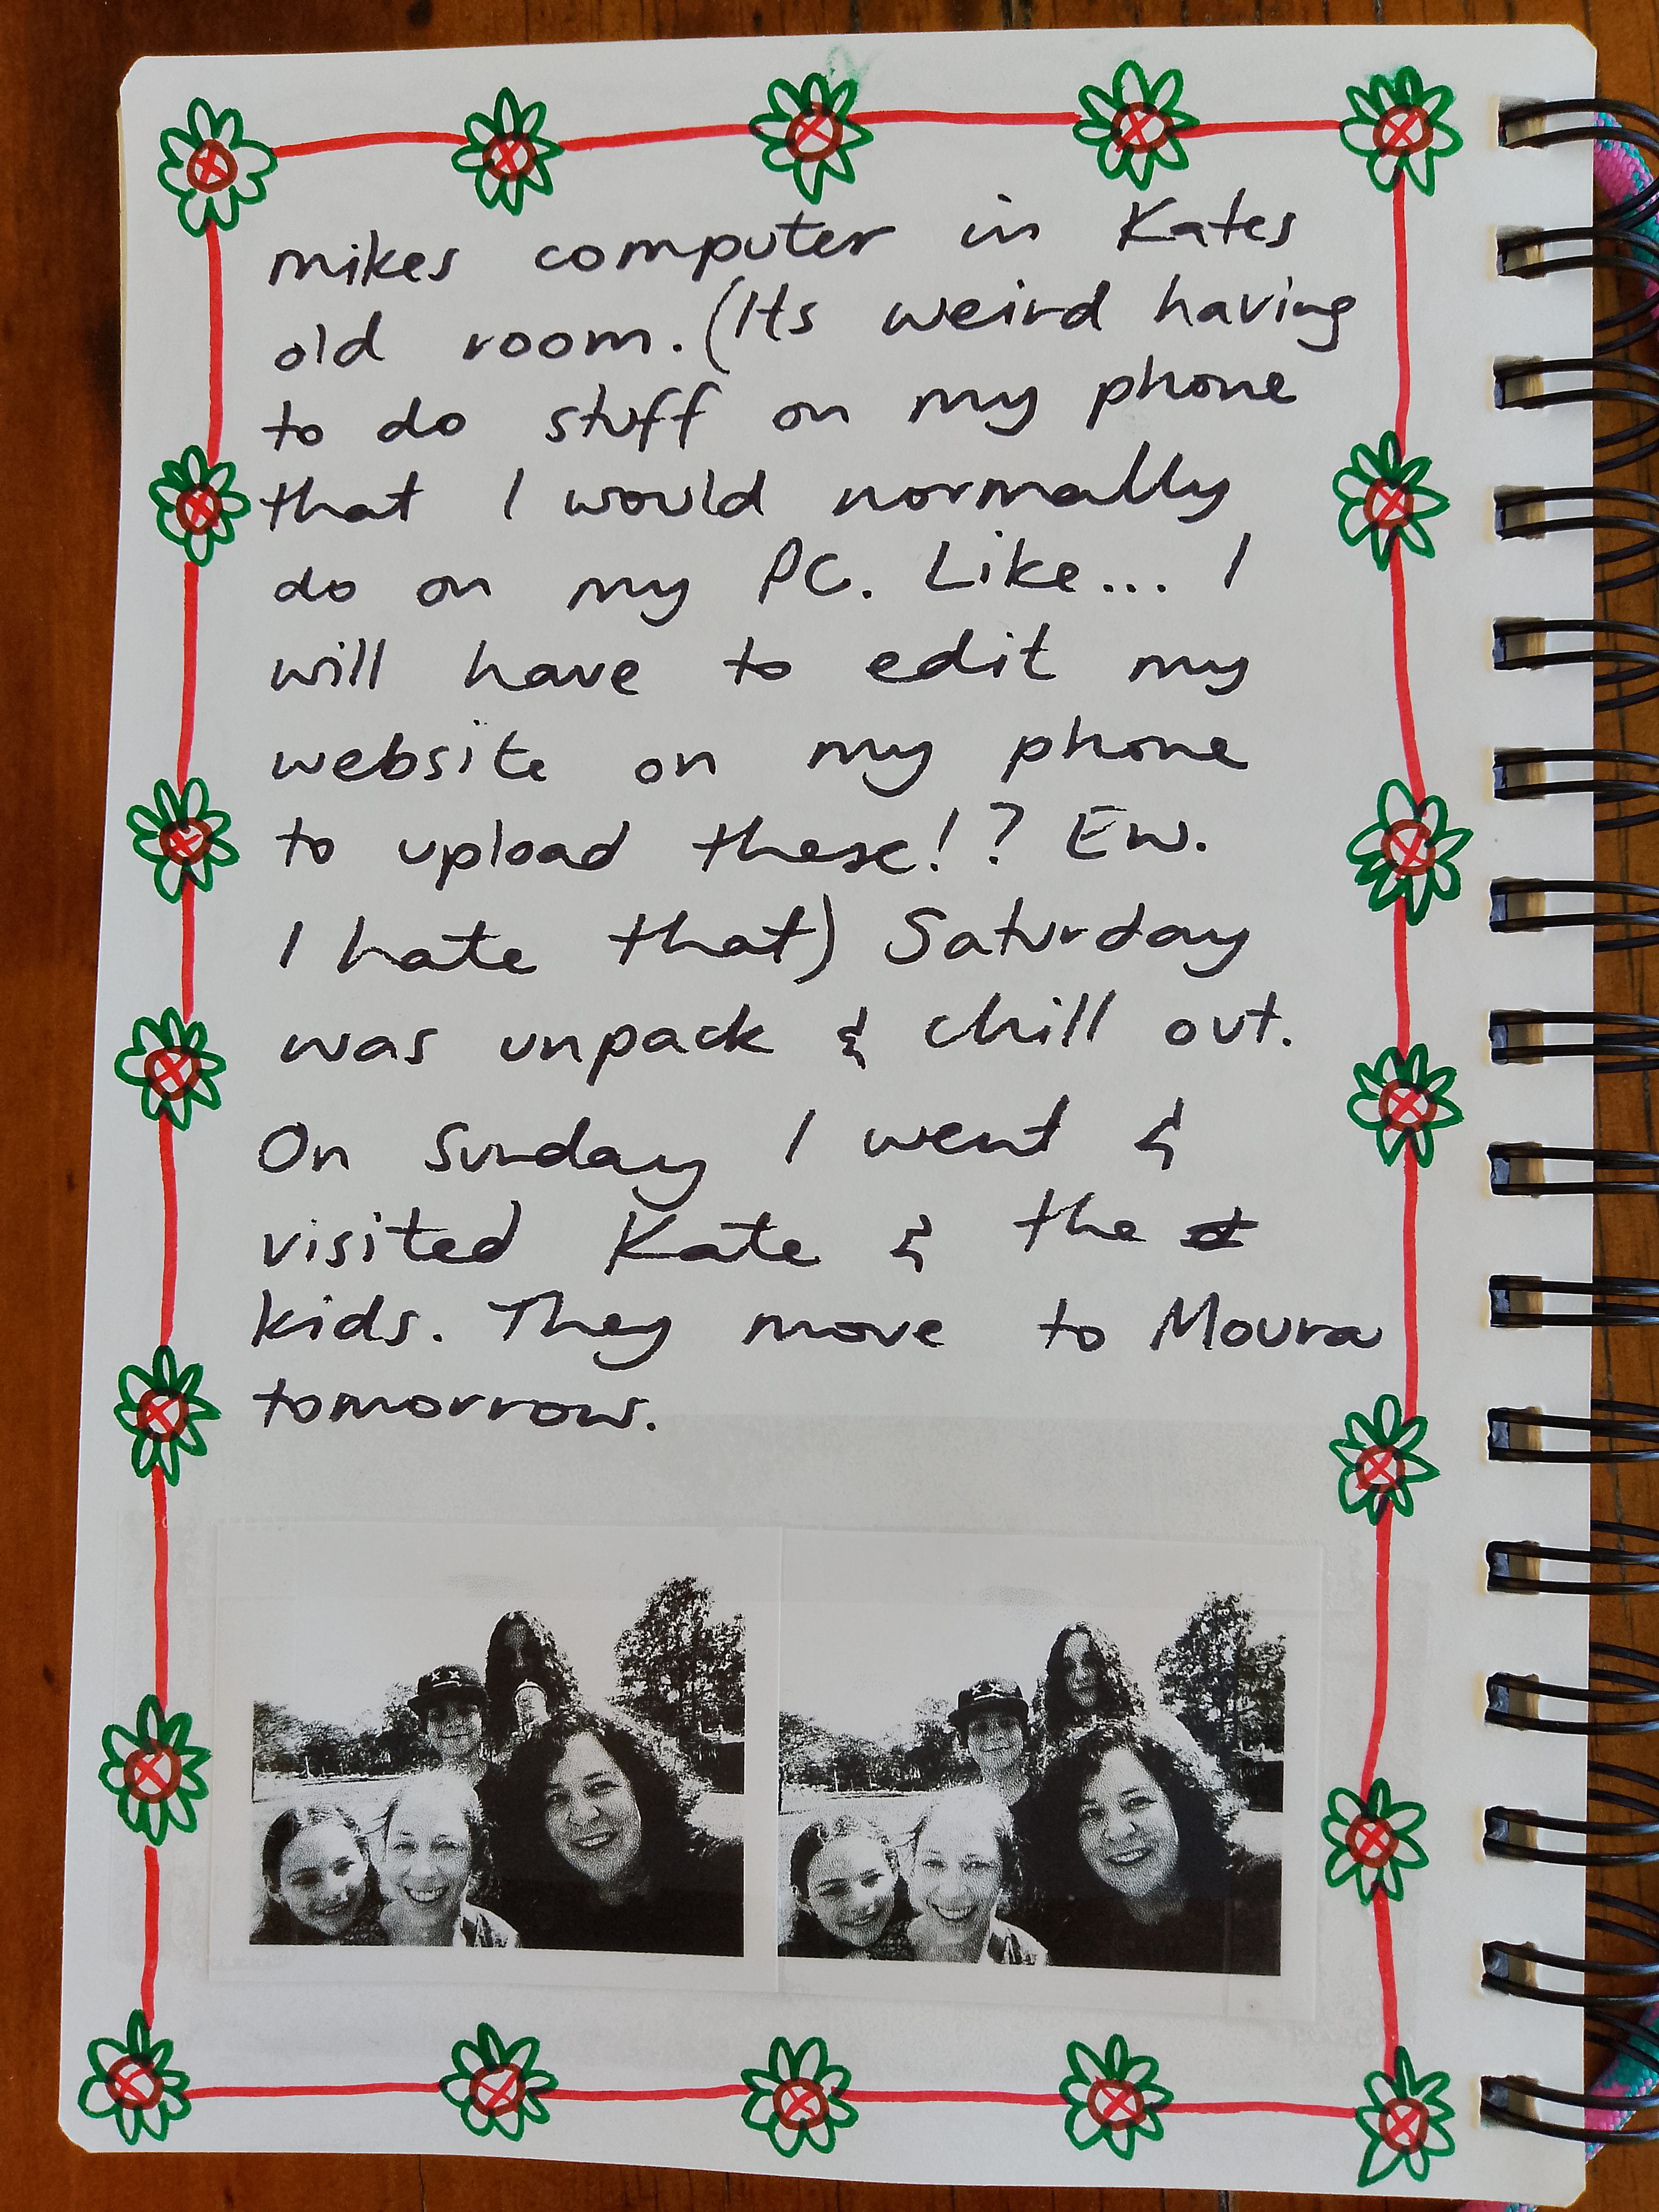 mikes computer in Kates
old room. (Its weird having
to do stuff on my phone
that I would normally
do on my PC. Like... I
will have to edit my
website on my phone
to upload these!? Ew.
I hate that) Saturday
was unpack & chill out.
On Sunday I went &
visited Kate & the
kids. They move to Moura
tomorrow.